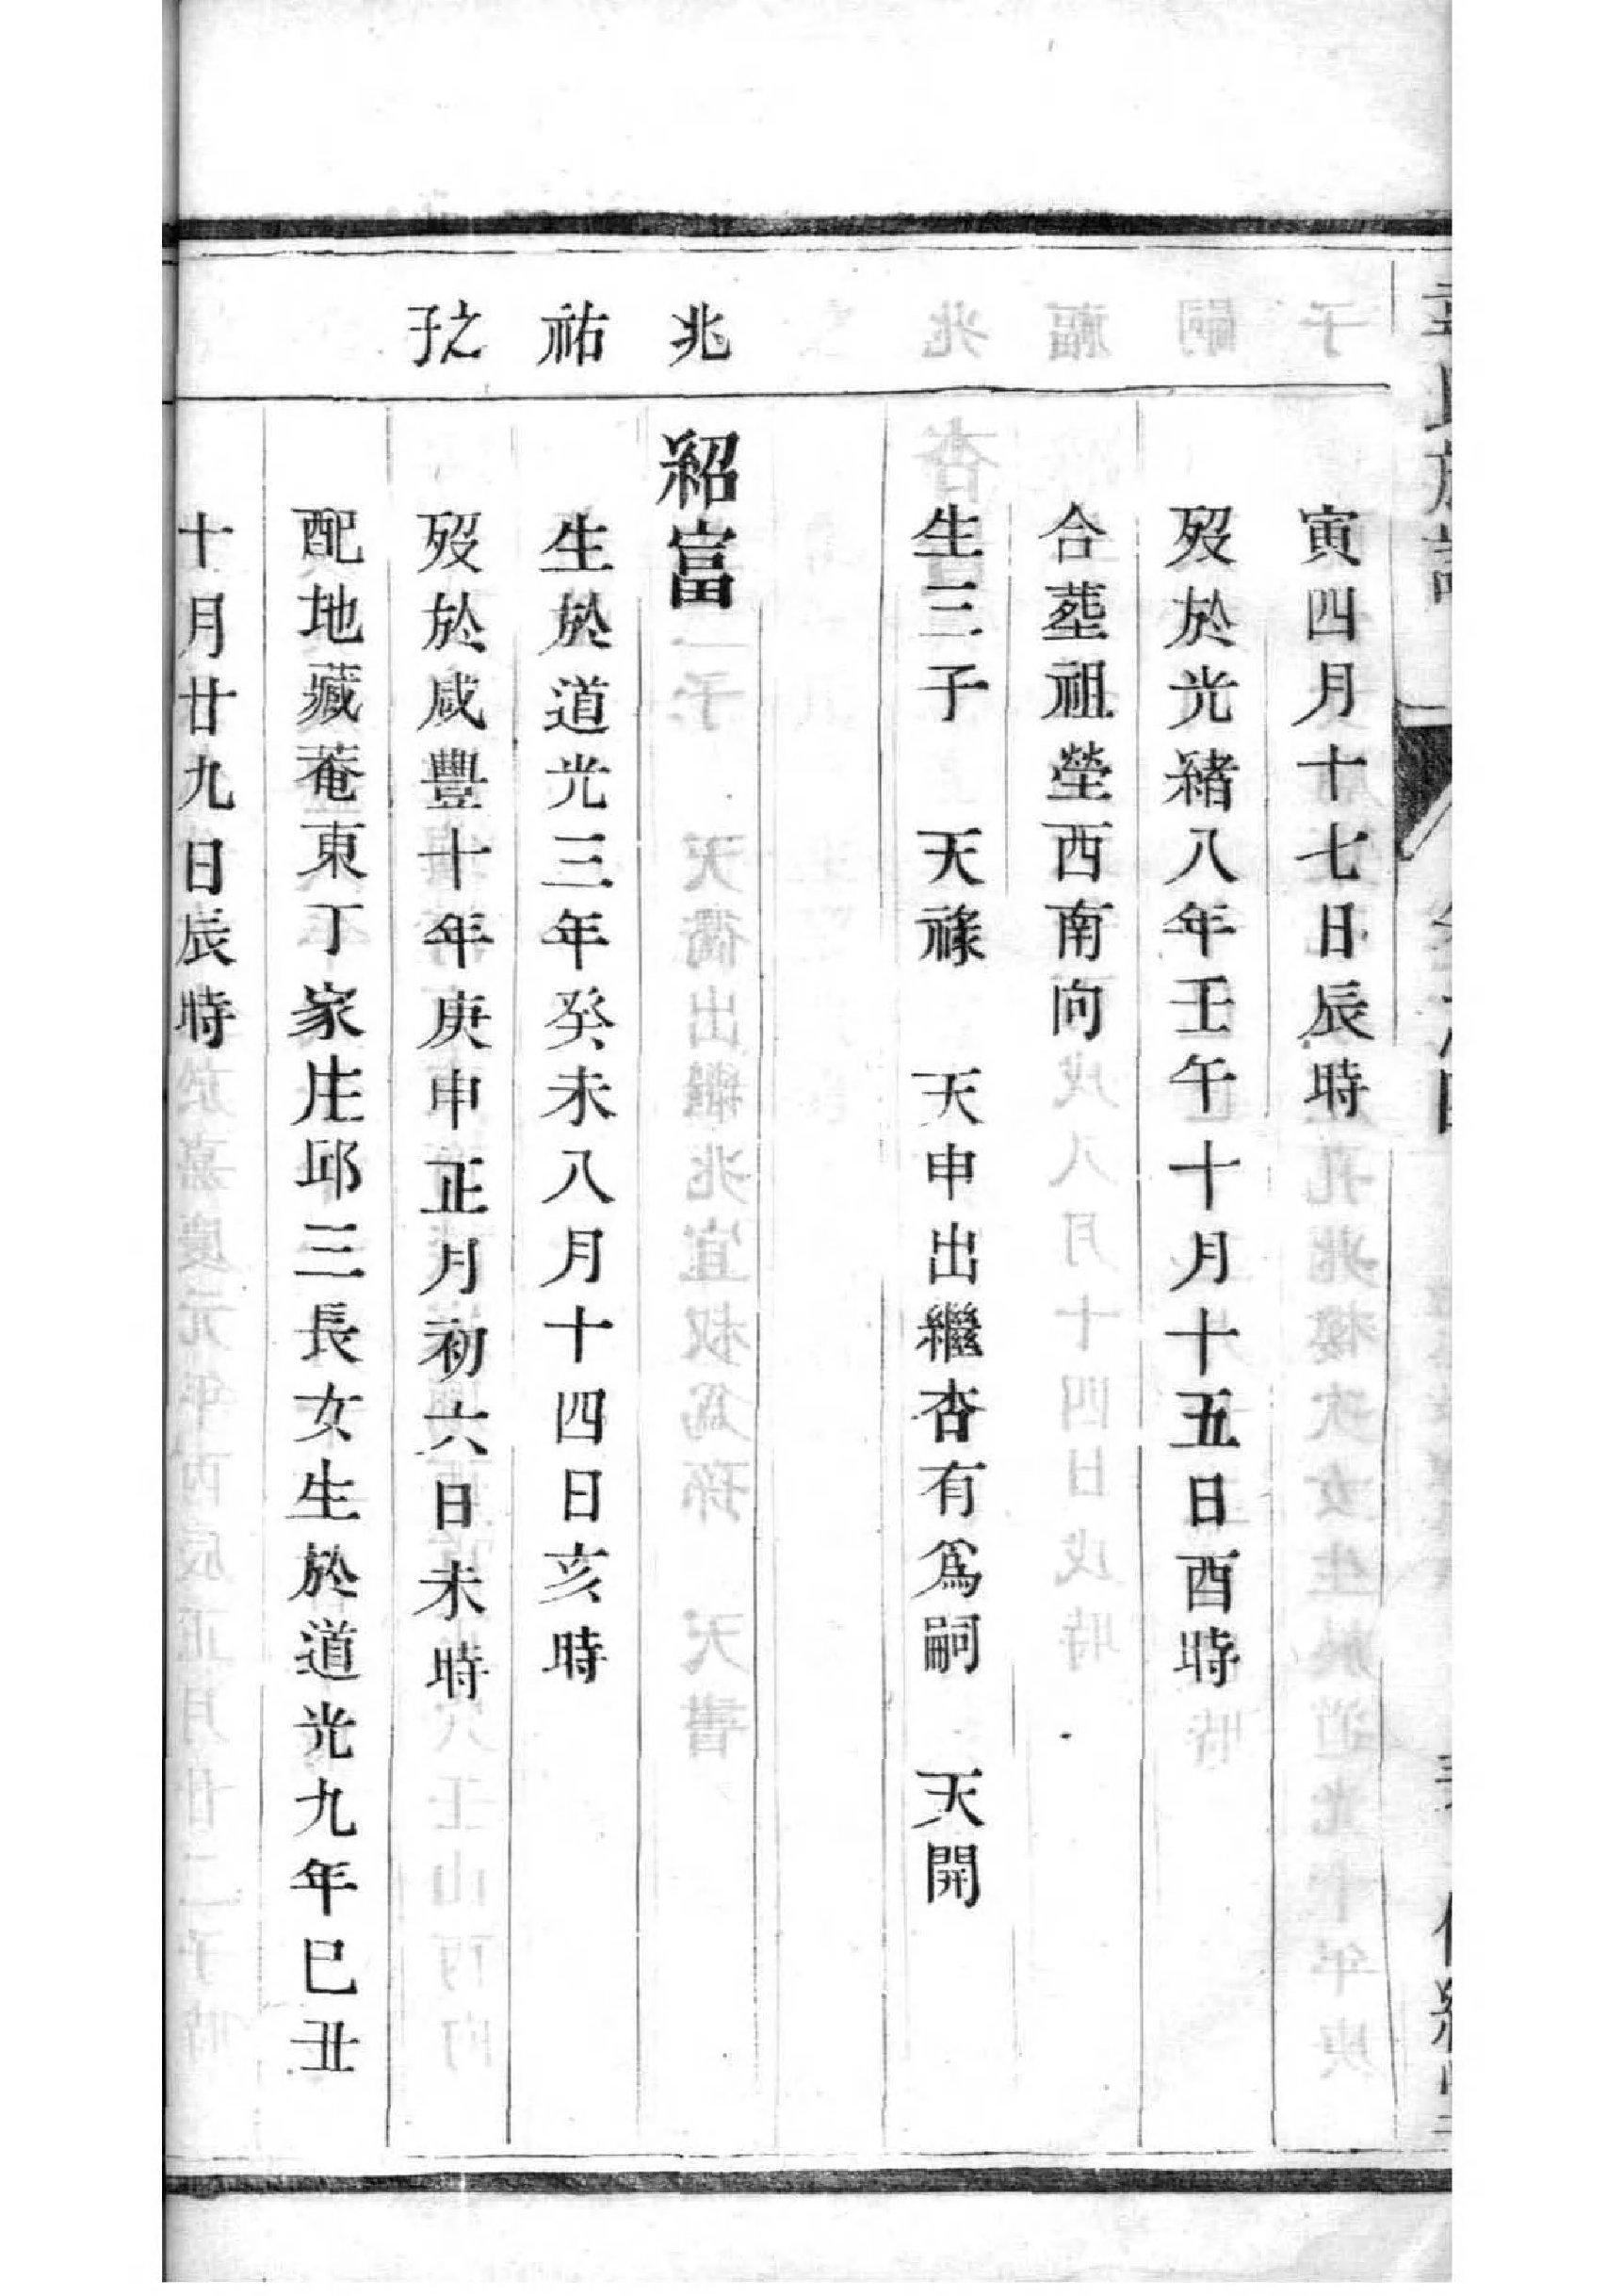 寅四月十七日辰時
歿於光緒八年壬午十月十五日酉時
合塟祖塋西南向
生三子　天祿　天申出繼杏有為嗣　天開
兆祐之子
紹富
生於道光三年癸未八月十四日亥時
歿於咸豐十年庚申正月初六日未時
配地藏菴東丁家庄邱三長女生於道光九年巳丑
十月廿九日辰時